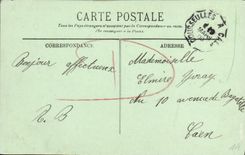 CARTE POSTALE
Tous les Pays étrangers n'acceptent pas la Correspondance au recto.
(Se renseigner à la Poste).
CORRESPONDANCE
ADRESSE
Bonjour affectueux
R. B
Mademoiselle
Elmire
10 avenue de
Caen